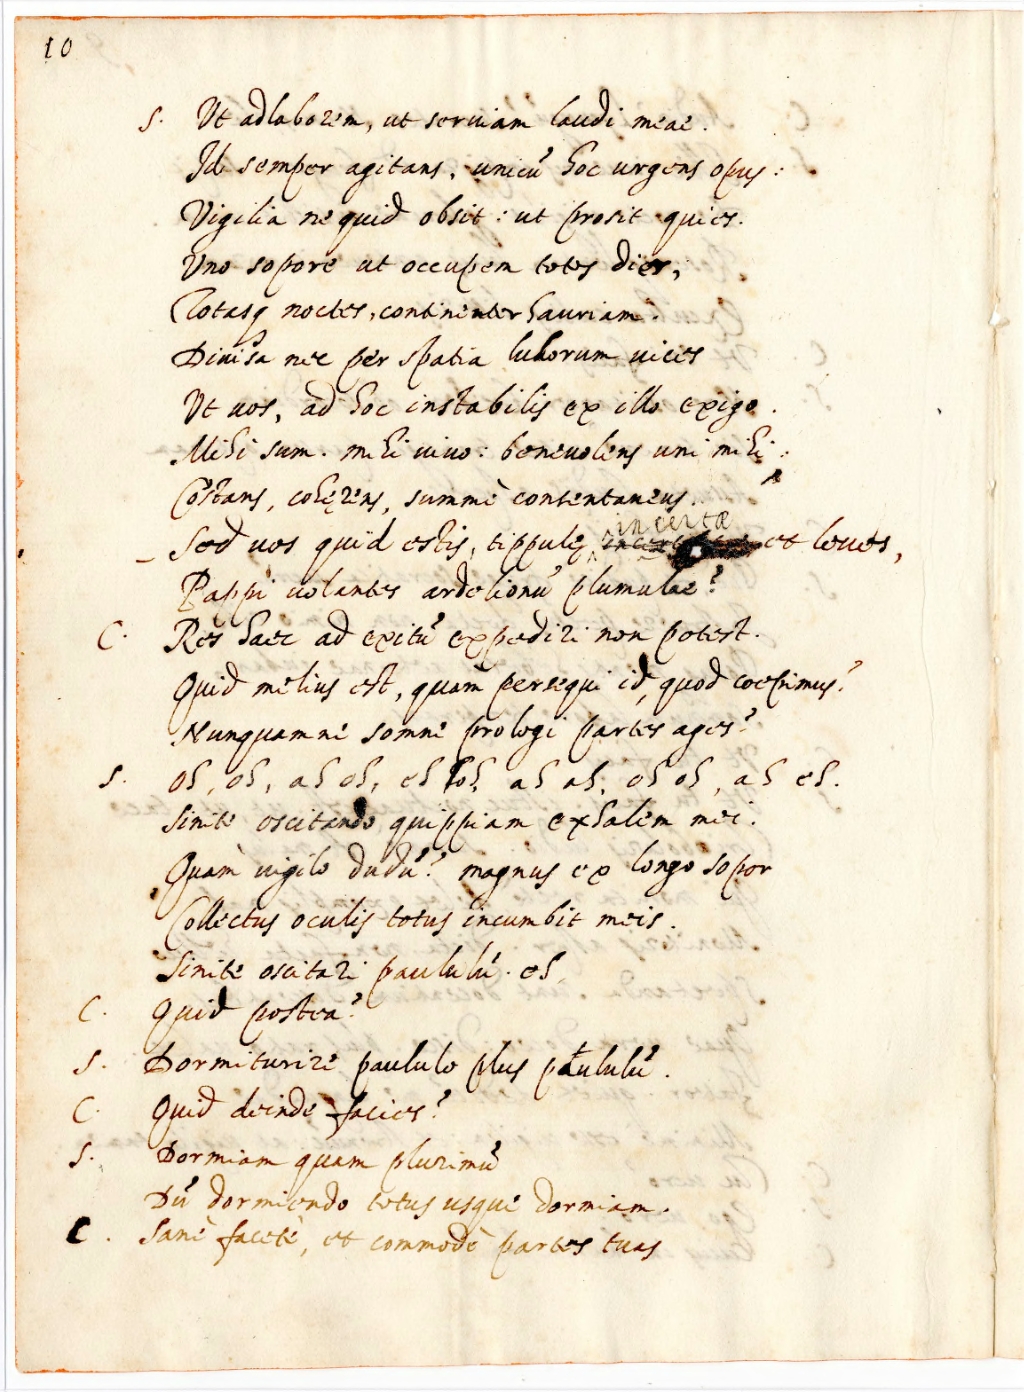 10
S. Ut adlaborem, ut seruiam laudi meae.
Id semper agitans, unicũ hoc urgens opus:
Vigilia ne quid obsit: ut prosit quies.
Uno sopore ut occupem totos dies,
Totasq noctes, continenter hauriam.
Diuisa nec per spatia luborum uices
Ut uos, ad hoc instabilis ex illo exigo.
Mihi sum. mihi uiuo: beneuolens uni mihi:
Cõstans, cohęrens, summè consentaneus.
incertæ
Sed uos quid estis, tippulę et leues,
Pappi uolantes ardelionũ plumulae?
C. Res haec ad exitũ expediri non potest.
Quid melius est, quàm persequi id, quod coepimus?
Nunquamne somne prologi partes ages?
S. oh, oh, ah oh, eh hoh, ah ah, oh oh, ah eh.
Sinite oscitando quippiam exhalem mei.
Quàm uigilo dudũ? magnus ex longo sopor
Collectus oculis totus incumbit meis.
Sinite oscitari paululũ. eh
C. Quid postea?
S. Dormiturire paululo plus paululũ.
C. Quid deinde facies?
S. Dormiam quam plurimũ
Dũ dormiendo totus usque dormiam.
C. Sanè facetè, et commodè partes tuas